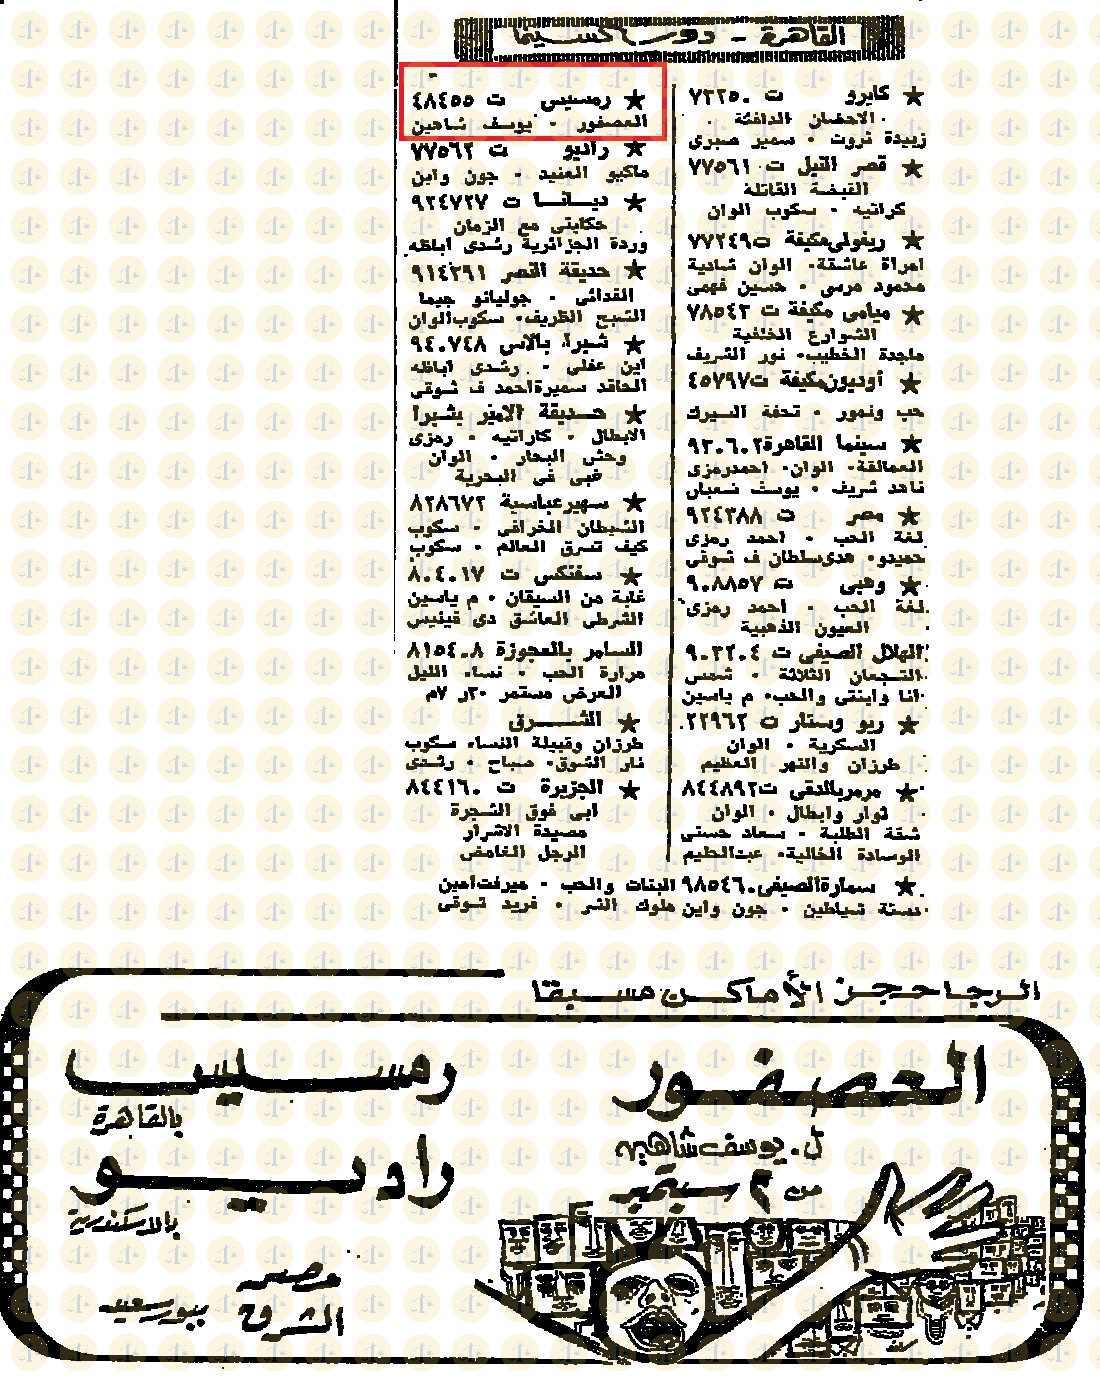 القاهرة - دور السينما
★ كايرو ت ٧٣٢٥٠
الاحضان الدافئة
زبيدة ثروت • سمير صبرى
★ قصر النيل ت ٧٧٥٦١
القبضة القاتلة
كراتيه • سكوب الوان
★ ريفولى مكيفة ت ٧٧٢٤٩
امرأة عاشقة • الوان شادية
محمود مرسى • حسين فهمى
★ ميامى مكيفة ت ٧٨٥٤٢
الشوارع الخلفية
ماجدة الخطيب • نور الشريف
★ أوديون مكيفة ت ٤٥٧٩٧
حب ونمور • تحفة السيرك
★ سينما القاهرة ٩٣٠٦٠٢
العمالقة • الوان • احمد رمزى
ناهد شريف • يوسف شعبان
★ مصر ت ٩٢٤٣٨٨
لغة الحب • احمد رمزى
حميدو • هدى سلطان ف شوقى
★ وهبى ت ٩٠٨٨٥٧
لغة الحب • احمد رمزى
العيون الذهبية
الهلال الصيفى ت ٩٠٣٢٠٤
الشجعان الثلاثة • شمس
انا وابنتى والحب • م ياسين
★ ريو وستار ت ٢٢٩٦٢
السكرية • الوان
طرزان والنهر العظيم
★ مرمر بالدقى ت ٨٤٤٨٩٢
ثوار وابطال • الوان
شقة الطلبة • سعاد حسنى
الوسادة الخالية • عبدالحليم
★ رمسيس ت ٤٨٤٥٥
العصفور • يوسف شاهين
★ راديو ت ٧٧٥٦٢
ماكيو العنيد • جون واين
★ ديانا ت ٩٢٤٧٢٧
حكايتى مع الزمان
وردة الجزائرية رشدى اباظه
★ حديقة النصر ٩١٤٢٩١
الفدائى • جوليانو جيما
الشبح الظريف • سكوب الوان
★ شبرا بالاس ٩٤٠٧٤٨
اين عقلى • رشدى اباظه
الحاقد سميرة احمد ف شوقى
★ حديقة الامير بشبرا
الابطال • كاراتيه • رمزى
وحش البحار • الوان
غبى فى البحرية
★ سهير عباسية ٨٢٨٦٧٢
الشيطان الخرافى • سكوب
كيف تسرق العالم • سكوب
★ سفنكس ت ٨٠٤٠١٧
غابة من السيقان • م ياسين
الشرطى العاشق دى فينيس
السامر بالعجوزة ٨١٥٤٠٨
مرارة الحب • نساء الليل
العرض مستمر ٣٠ر ٧م
★ الشرق
طرزان وقبيلة النساء سكوب
نار الشوق • صباح • رشدى
★ الجزيرة ت ٨٤٤١٦٠
ابى فوق الشجرة
مصيدة الاشرار
الرجل الغامض
★ سمارة الصيفى ٩٨٥٤٦٠ البنات والحب • ميرفت امين
ستة شياطين • جون واين ملوك الشر • فريد شوقى
الرجا حجز الأماكن مسبقا
العصفور
ل. يوسف شاهين
من ٣ سبتمبر
رمسيس
بالقاهرة
راديو
بالاسكندرية
مصر
الشرق ببورسعيد